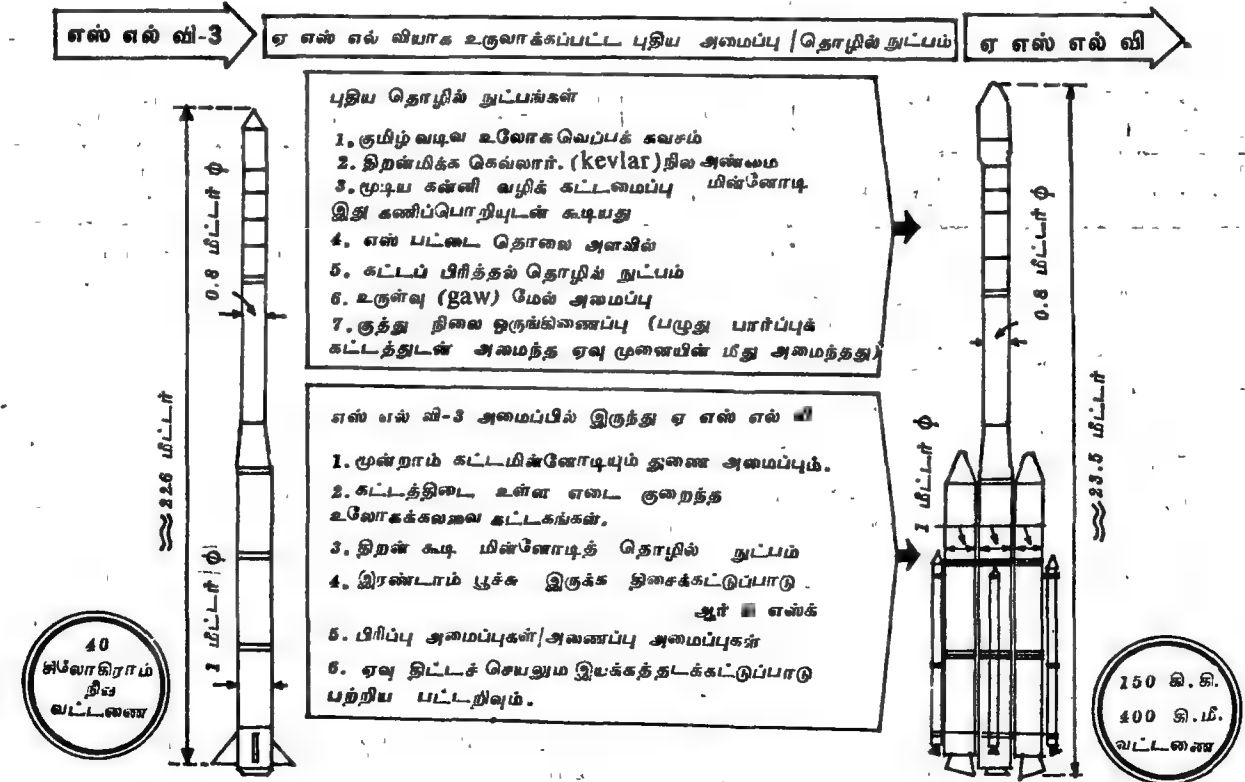 எஸ் எல் வி-3
ஏ எஸ் எல் வியாக உருவாக்கப்பட்ட புதிய அமைப்பு / தொழில் நுட்பம்
ஏ எஸ் எல் வி
புதிய தொழில் நுட்பங்கள்
1. குமிழ் வடிவ உலோக வெப்பக் கவசம்
2. திறன்மிக்க கெவ்லார். (kevlar) நில அண்மை
3. மூடிய கன்னி வழிக் கட்டமைப்பு மின்னோடி
இது கணிப்பொறியுடன் கூடியது
4. எஸ் பட்டை தொலை அளவில்
5. கட்டப் பிரித்தல் தொழில் நுட்பம்
6. உருள்வு (gaw) மேல் அமைப்பு
7. குத்து நிலை ஒருங்கிணைப்பு (பழுது பார்ப்புக்
கட்டத்துடன் அமைந்த ஏவு முனையின் மீது அமைந்தது)
எஸ் எல் வி-3 அமைப்பில் இருந்து ஏ எஸ் எல்
1. மூன்றாம் கட்டமின்னோடியும் துணை அமைப்பும்.
2. கட்டத்திடை உள்ள எடை குறைந்த
உலோகக்கலவை கட்டகங்கள்.
3. திறன் கூடி மின்னோடித் தொழில் நுட்பம்
4. இரண்டாம் பூச்சு இருக்க திசைக்கட்டுப்பாடு
ஆர் எஸ்க்
5. பிரிப்பு அமைப்புகள்/அணைப்பு அமைப்புகள்
6. ஏவு திட்டச் செயலும இயக்கத்தடக்கட்டுப்பாடு
பற்றிய பட்டறிவும்.
0.8 மீட்டர் ϕ
≈22.6 மீட்டர்
1 மீட்டர் ϕ
40
கிலோகிராம்
நீவ
வட்டணை
0.8 மீட்டர் ϕ
1 மீட்டர் ϕ
≈23.5 மீட்டர்
150 கி.கி.
400 கி.மீ.
வட்டணை